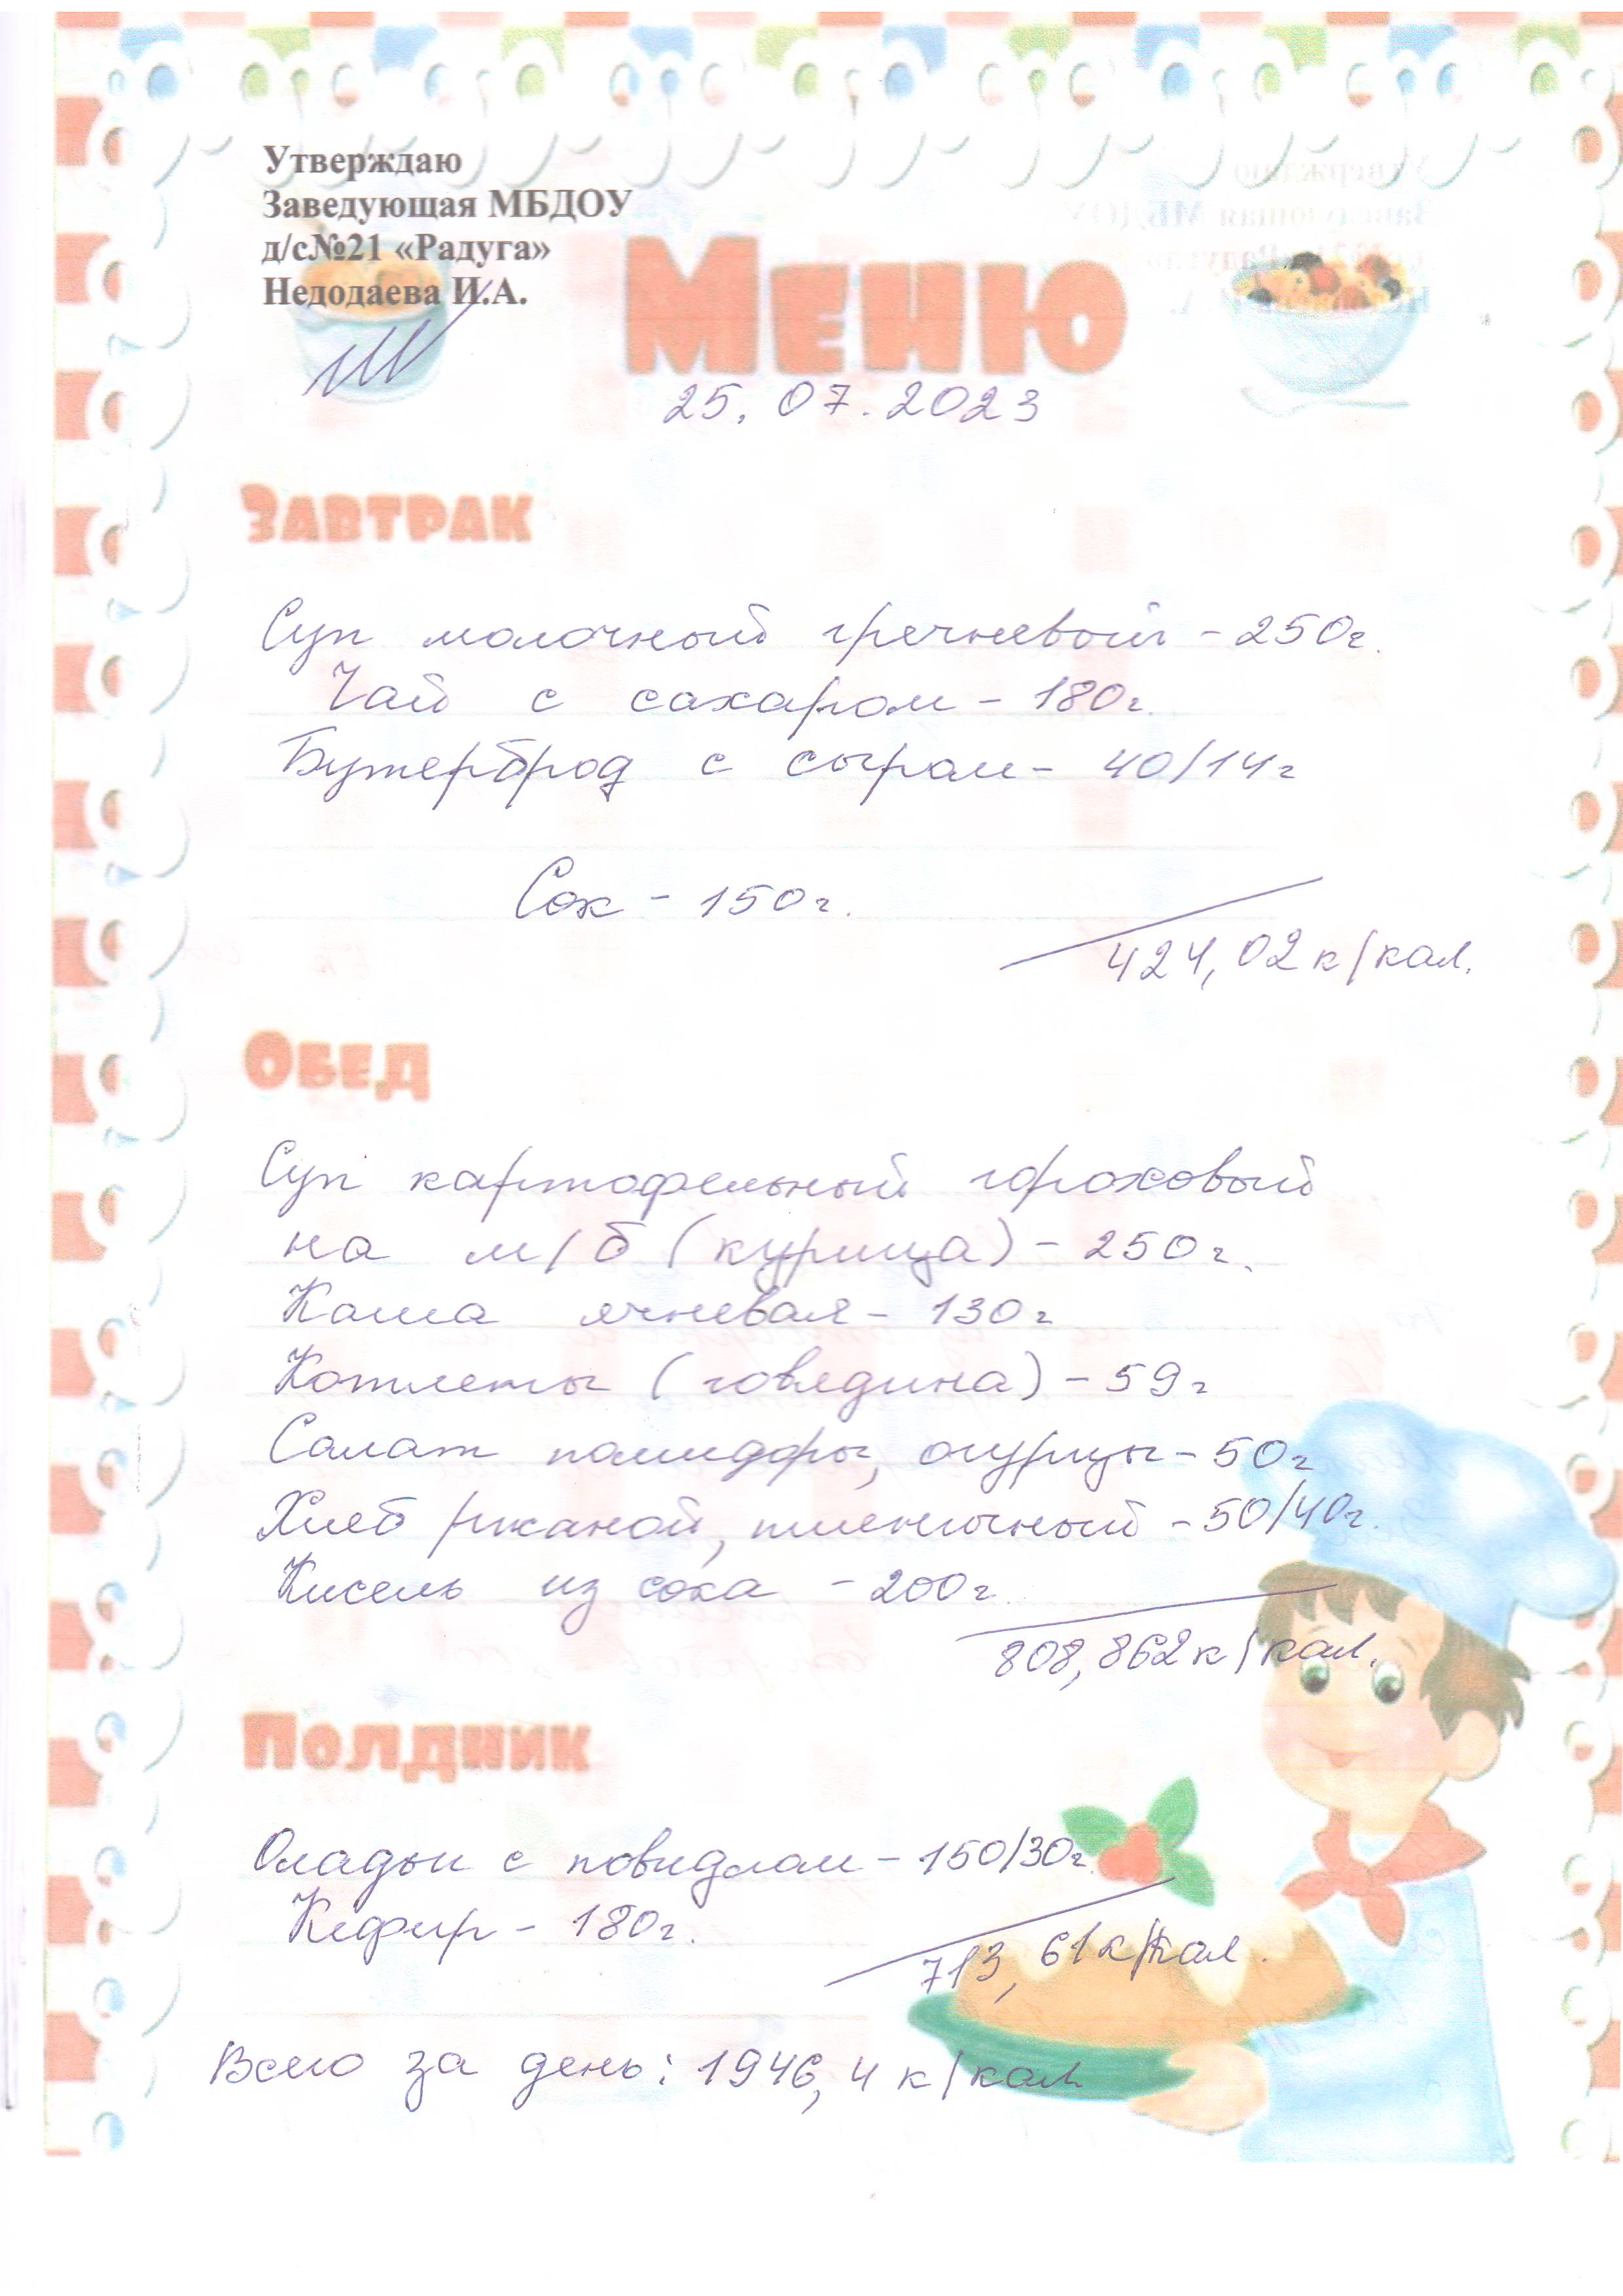 Утверждаю
Заведующая МБДОУ
д/с№21 «Радуга»
Недодаева И.А.
Меню
25.07.2023
Завтрак
Суп молочный гречневый - 250г.
Чай с сахаром - 180г.
Бутерброд с сыром - 40/14г
Сок - 150г.
424,02 к/кал.
Обед
Суп картофельный гороховый
на м/б (курица) - 250г.
Каша ячневая - 130г
Котлеты (говядина) - 59г
Салат помидоры, огурцы - 50г
Хлеб ржаной, пшеничный - 50/40г.
Кисель из сока - 200г.
808,862 к/кал.
Полдник
Оладьи с повидлом - 150/30г.
Кефир - 180г.
713,61 к/кал.
Всего за день: 1946,4 к/кал